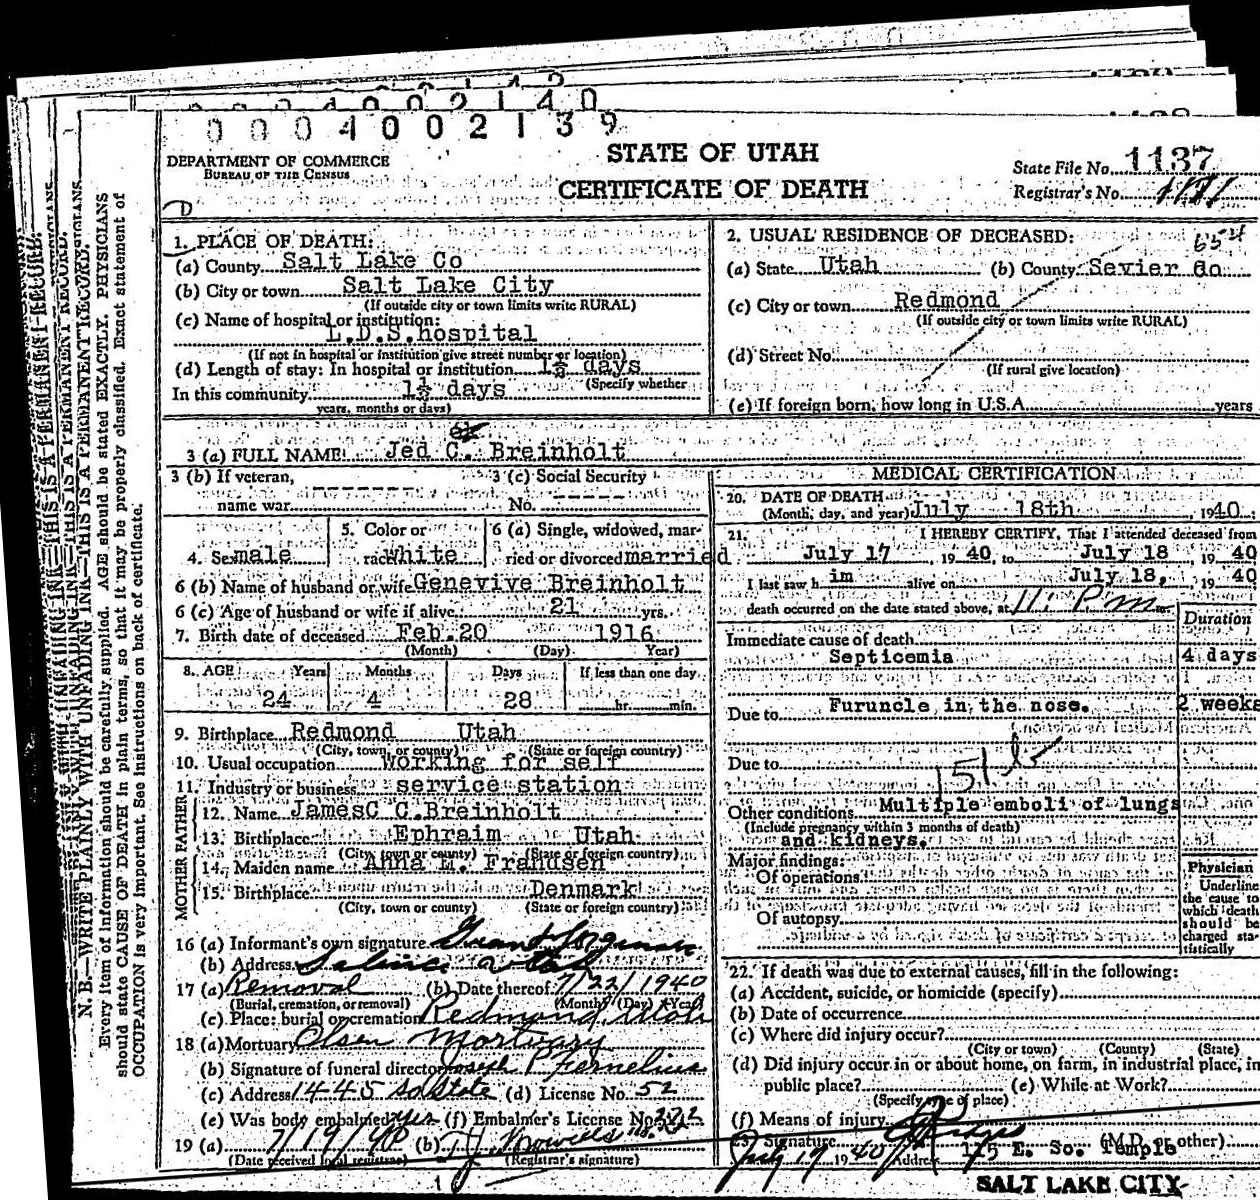 0004002140
0004002139
DEPARTMENT OF COMMERCE
BUREAU OF THE CENSUS
STATE OF UTAH
CERTIFICATE OF DEATH
State File No. 1137
Registrar's No.
D
1. PLACE OF DEATH:
(a) County Salt Lake Co
(b) City or town Salt Lake City
(If outside city or town limits write RURAL)
(c) Name of hospital or institution:
L.D.S.hospital
(If not in hospital or institution give street number or location)
(d) Length of stay: In hospital or institution 1½ days
(Specify whether
In this community 1½ days
years, months or days)
2. USUAL RESIDENCE OF DECEASED:
(a) State Utah (b) County Sevier Co.
(c) City or town Redmond
(If outside city or town limits write RURAL)
(d) Street No.
(If rural give location)
(e) If foreign born, how long in U.S.A. years
3 (a) FULL NAME Jed C. Breinholt
3 (b) If veteran,
name war
3 (c) Social Security
No.
4. Sex male
5. Color or
race white
6 (a) Single, widowed, mar-
ried or divorced married
6 (b) Name of husband or wife Genevive Breinholt
6 (c) Age of husband or wife if alive 21 yrs.
7. Birth date of deceased Feb. 20 1916
(Month) (Day) Year)
8. AGE Years Months Days If less than one day
24 4 28 hr. min.
9. Birthplace Redmond Utah
(City, town, or county) (State or foreign country)
10. Usual occupation Working for self
11. Industry or business service station
FATHER
12. Name JamesC C.Breinholt
13. Birthplace Ephraim Utah
(City, town or county) (State or foreign country)
MOTHER
14. Maiden name Anna E. Frandsen
15. Birthplace Denmark
(City, town or county) (State or foreign country)
16 (a) Informant's own signature Grant Jorgensen
(b) Address Salina Utah
17 (a) Removal (b) Date thereof 7/22/1940
(Burial, cremation, or removal) (Month) (Day) (Year)
(c) Place: burial or cremation Redmond, Utah
18 (a) Mortuary Olsen Mortuary
(b) Signature of funeral director Joseph P. Fernelius
(c) Address 1445 So State (d) License No. 52
(e) Was body embalmed yes (f) Embalmer's License No. 322
19 (a) 7/19/40 (b)
(Date received local registrar) (Registrar's signature)
MEDICAL CERTIFICATION
20. DATE OF DEATH
(Month, day, and year) July 18th 1940
21. I HEREBY CERTIFY, That I attended deceased from
July 17 1940, to July 18 1940
I last saw him alive on July 18, 1940
death occurred on the date stated above, at 11: P.m.
Duration
Immediate cause of death
Septicemia 4 days
Due to Furuncle in the nose. 2 weeks
Due to
151b
Other conditions Multiple emboli of lungs
(Include pregnancy within 3 months of death)
and kidneys.
Major findings:
Of operations
Of autopsy
Physician
Underline
the cause to
which death
should be
charged sta-
tistically
22. If death was due to external causes, fill in the following:
(a) Accident, suicide, or homicide (specify)
(b) Date of occurrence
(c) Where did injury occur?
(City or town) (County) (State)
(d) Did injury occur in or about home, on farm, in industrial place, in
public place? (e) While at Work?
(Specify type of place)
(f) Means of injury
Signature (M.D. or other)
July 19 1940 Address 115 E. So. Temple
SALT LAKE CITY
N. B.—WRITE PLAINLY WITH UNFADING INK—THIS IS A PERMANENT RECORD.
Every item of information should be carefully supplied. AGE should be stated EXACTLY. PHYSICIANS
should state CAUSE OF DEATH in plain terms, so that it may be properly classified. Exact statement of
OCCUPATION is very important. See instructions on back of certificate.